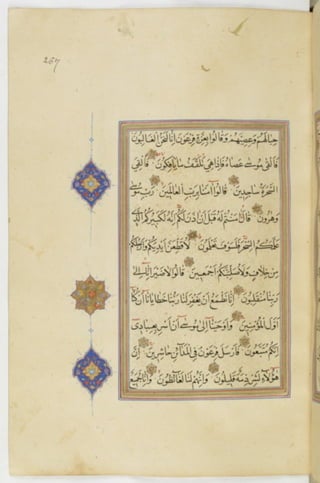 267
حِبَالَهُمْ وَعِصِيَّهُمْ وَقَالُوا بِعِزَّةِ فِرْعَوْنَ إِنَّا لَنَحْنُ الْغَالِبُونَ
فَأَلْقَىٰ مُوسَىٰ عَصَاهُ فَإِذَا هِيَ تَلْقَفُ مَا يَأْفِكُونَ فَأُلْقِيَ
السَّحَرَةُ سَاجِدِينَ قَالُوا آمَنَّا بِرَبِّ الْعَالَمِينَ رَبِّ مُوسَىٰ
وَهَٰرُونَ قَالَ آمَنْتُمْ لَهُ قَبْلَ أَنْ آذَنَ لَكُمْ إِنَّهُ لَكَبِيرُكُمُ الَّذِي
عَلَّمَكُمُ السِّحْرَ فَلَسَوْفَ تَعْلَمُونَ لَأُقَطِّعَنَّ أَيْدِيَكُمْ وَأَرْجُلَكُمْ
مِنْ خِلَافٍ وَلَأُصَلِّبَنَّكُمْ أَجْمَعِينَ قَالُوا لَا ضَيْرَ إِنَّا إِلَىٰ
رَبِّنَا مُنْقَلِبُونَ إِنَّا نَطْمَعُ أَنْ يَغْفِرَ لَنَا رَبُّنَا خَطَايَانَا أَنْ كُنَّا
أَوَّلَ الْمُؤْمِنِينَ وَأَوْحَيْنَا إِلَىٰ مُوسَىٰ أَنْ أَسْرِ بِعِبَادِي
إِنَّكُمْ مُتَّبَعُونَ فَأَرْسَلَ فِرْعَوْنُ فِي الْمَدَائِنِ حَاشِرِينَ إِنَّ
هَٰؤُلَاءِ لَشِرْذِمَةٌ قَلِيلُونَ وَإِنَّهُمْ لَنَا لَغَائِظُونَ وَإِنَّا لَجَمِيعٌ